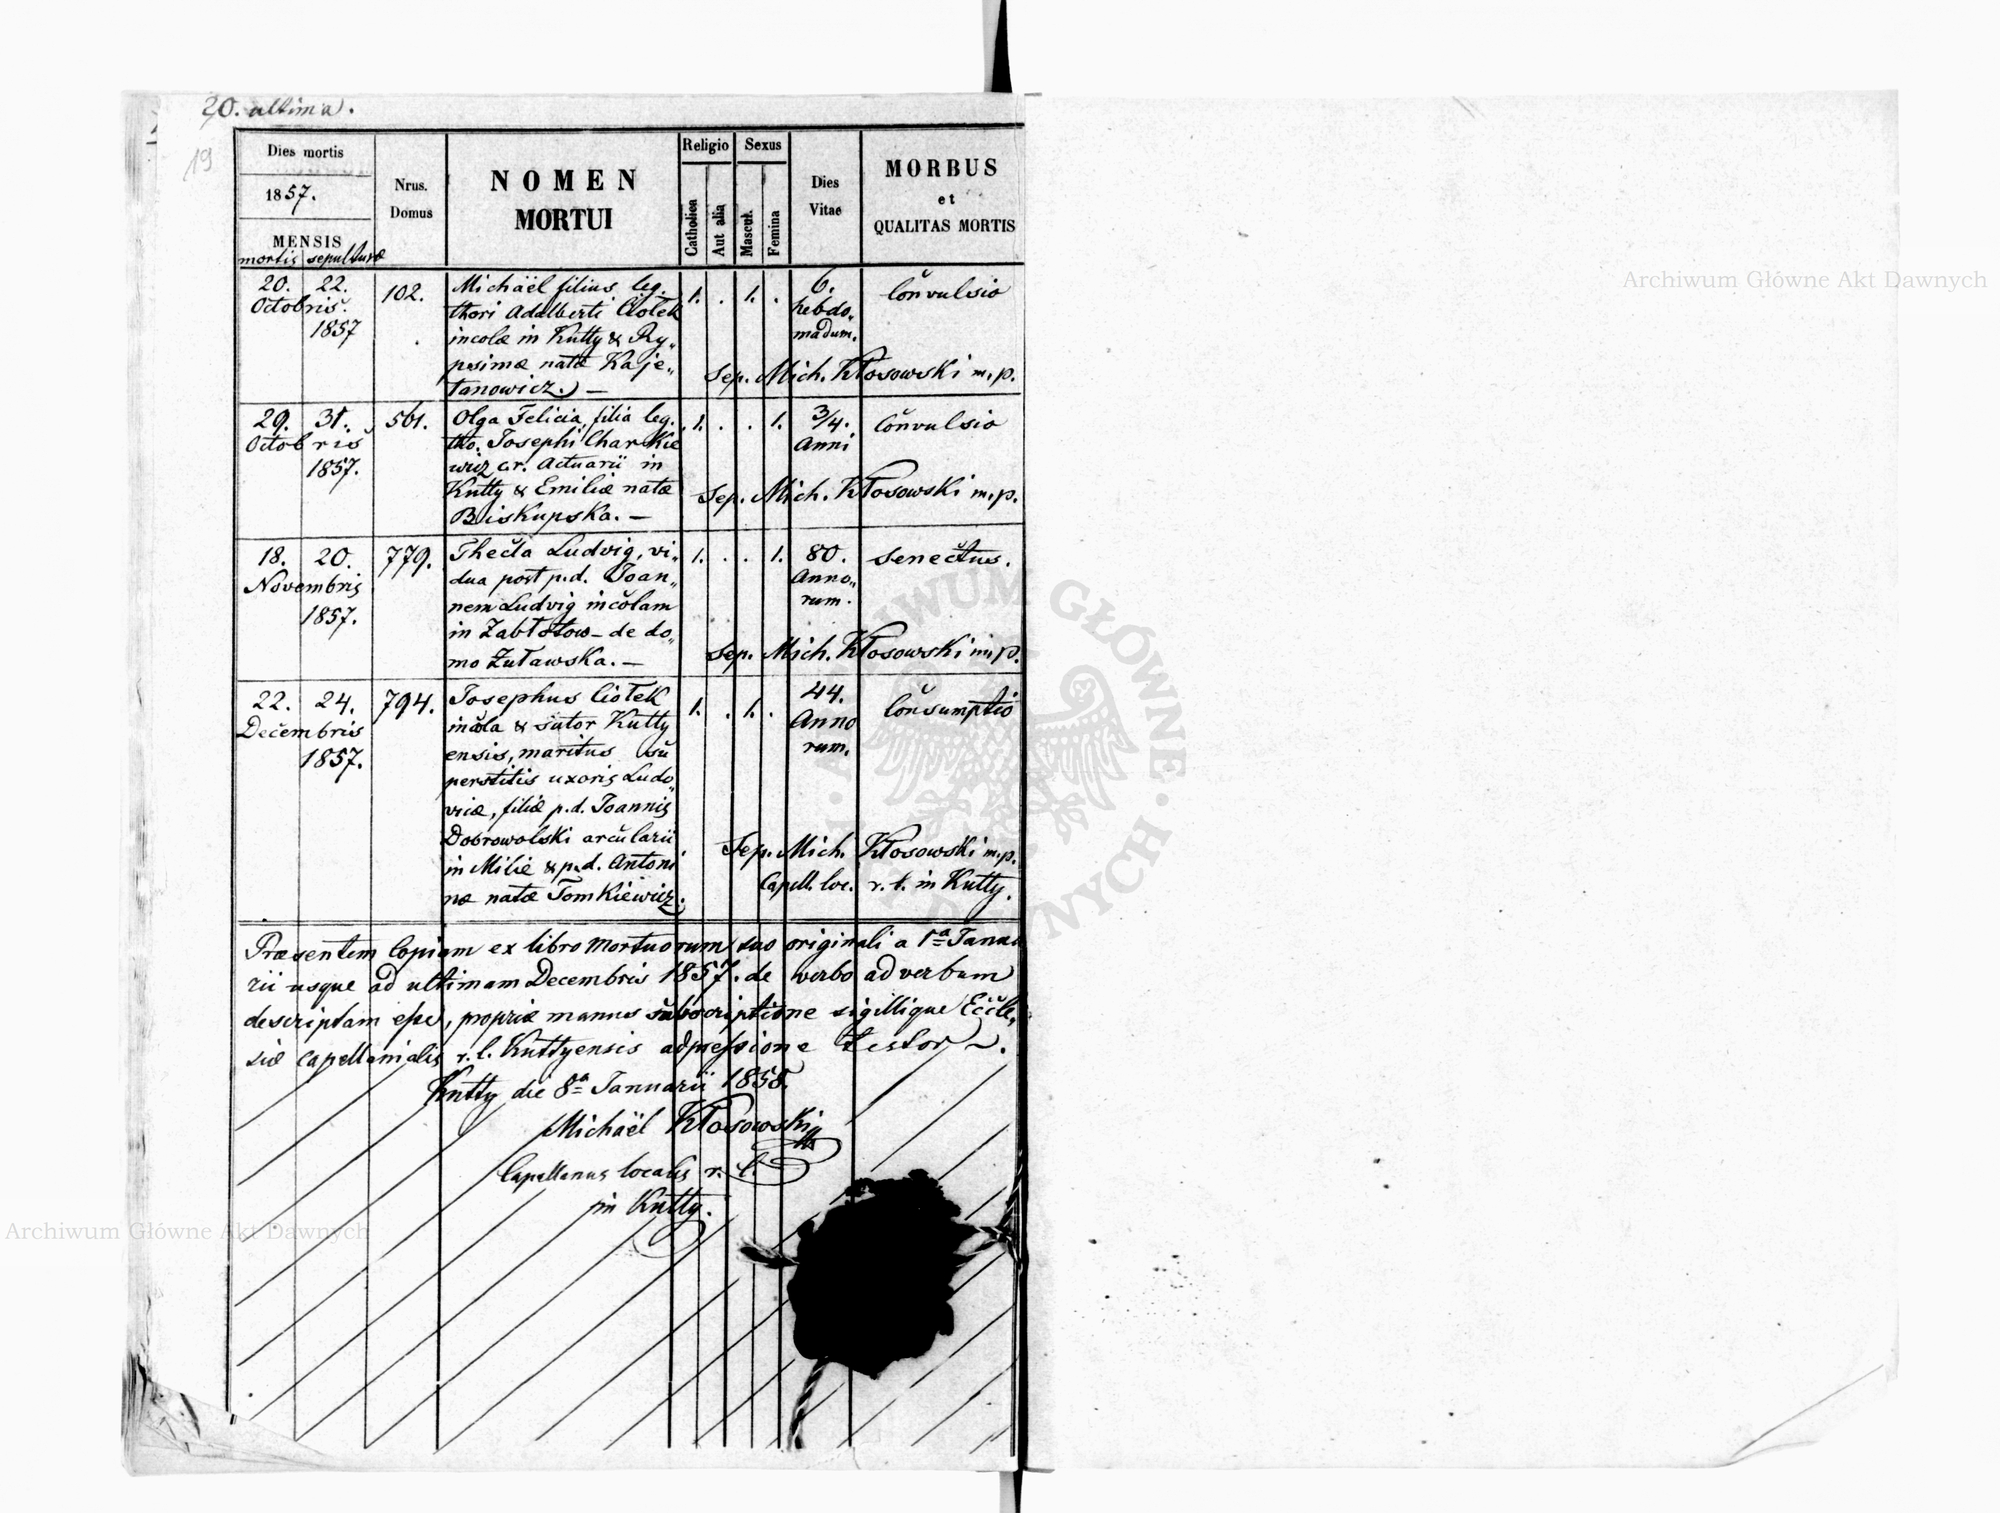 20. ultima.
19
Dies mortis
1857.
MENSIS
mortis sepulturæ
Nrus.
Domus
NOMEN
MORTUI
Religio
Catholica
Aut alia
Sexus
Mascul.
Femina
Dies
Vitae
MORBUS
et
QUALITAS MORTIS
20. 22.
Octobris.
1857
102.
Michaël filius leg.
thori Adalberti Ciołek
incolæ in Kutty & Ry„
psimæ natæ Kaje„
tanowicz.) —
1. . 1. .
6.
hebdo„
madum.
Convulsio
Sep. Mich. Kłosowski m.p.
29. 31.
Octobris
1857.
561.
Olga Felicia, filia leg.
tho. Josephi Charkie
wicz cr. Actuarii in
Kutty & Emiliæ natæ
Biskupska. —
1. . . 1.
3/4.
Anni
Convulsio
Sep. Mich. Kłosowski m.p.
18. 20.
Novembris
1857.
779.
Thecla Ludvig, vi„
dua post p.d. Joan„
nem Ludvig incolam
in Zabłotow – de do„
mo Zuławska. —
1. . . 1.
80.
Anno„
rum.
Senectus.
Sep. Mich. Kłosowski m.p.
22. 24.
Decembris
1857.
794.
Josephus Ciołek
incola & sutor Kutty
ensis, maritus su
perstitis uxoris Ludo„
vicæ, filiæ p.d. Joannis
Dobrowolski arcularii
in Milie & p.d. Antoni
næ natæ Tomkiewicz.
1. . 1. .
44.
Anno
rum.
Consumptio
Sep. Mich. Kłosowski m.p.
Capell. loc. r. l. in Kutty.
Præsentem Copiam ex libro Mortuorum suo originali a 1a Janua
rii usque ad ultimam Decembris 1857. de verbo ad verbum
descriptam esse, propriæ manus subscriptione sigillique Eccle„
siæ capellanialis r. l. Kuttyensis adpressione testor.
Kutty die 8a Januarii 1858.
Michaël Kłosowski
Capellanus localis r. l.
in Kutty.
Archiwum Główne Akt Dawnych
Archiwum Główne Akt Dawnych
ARCHIWUM GŁÓWNE AKT DAWNYCH